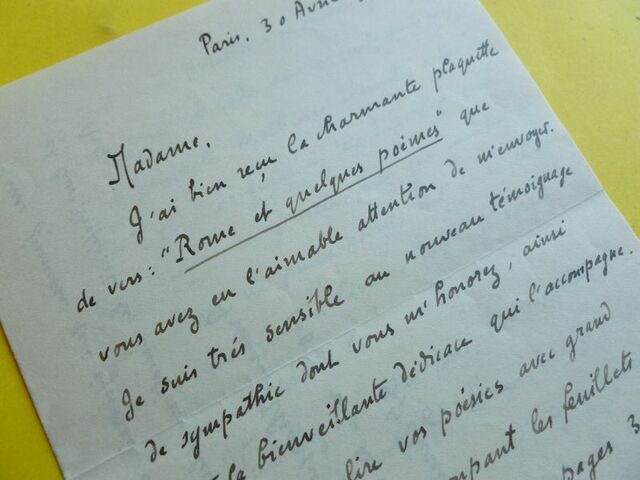 Paris, 30 Avril
Madame.
J'ai bien reçu la charmante plaquette
de vers: "Rome et quelques poèmes" que
vous avez eu l'aimable attention de m'envoyer.
Je suis trés sensible au nouveau témoignage
de sympathie dont vous m'honorez, ainsi
la bienveillante dédicace qui l'accompagne.
lire vos poésies avec grand
les feuillets
pages 3